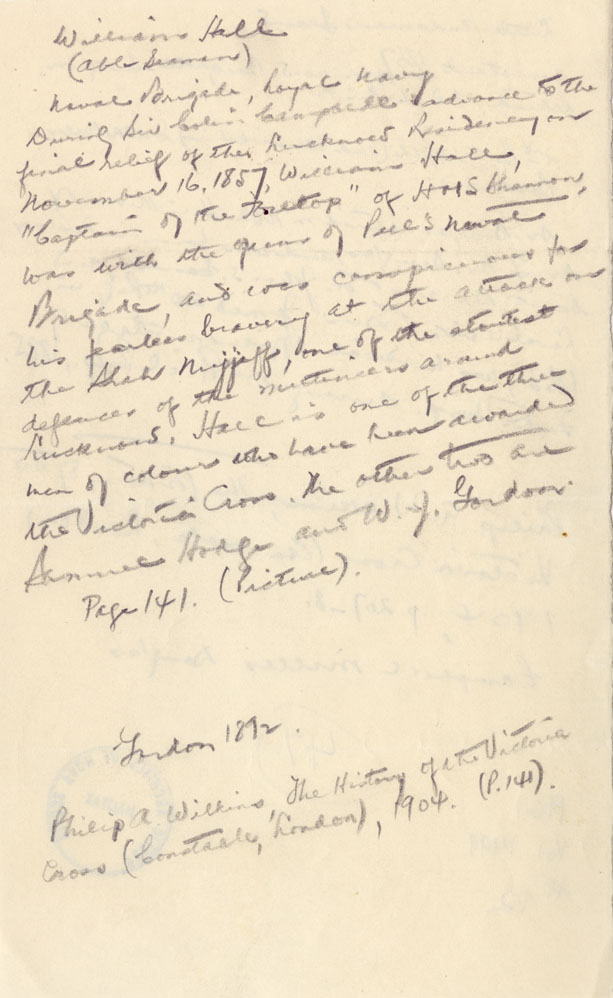 William Hall
(Able Seaman)
Naval Brigade, Royal Navy
During Sir Colin Campbell's advance to the
final relief of the Lucknow Residency on
November 16, 1857, William Hall,
"Captain of the Foretop" of HMS Shannon,
was with the guns of Peel's Naval
Brigade, and was conspicuous for
his fearless bravery at the attack on
the Shah Nujjeff, one of the stoutest
defences of the mutineers around
Lucknow. Hall is one of the three
men of colour who have been awarded
the Victoria Cross. The other two are
Samuel Hodge and W. J. Gordon.
Page 141. (Picture).
Gordon 1892.
Philip A Wilkins, The History of the Victoria
Cross (Constable, London), 1904. (P.141).